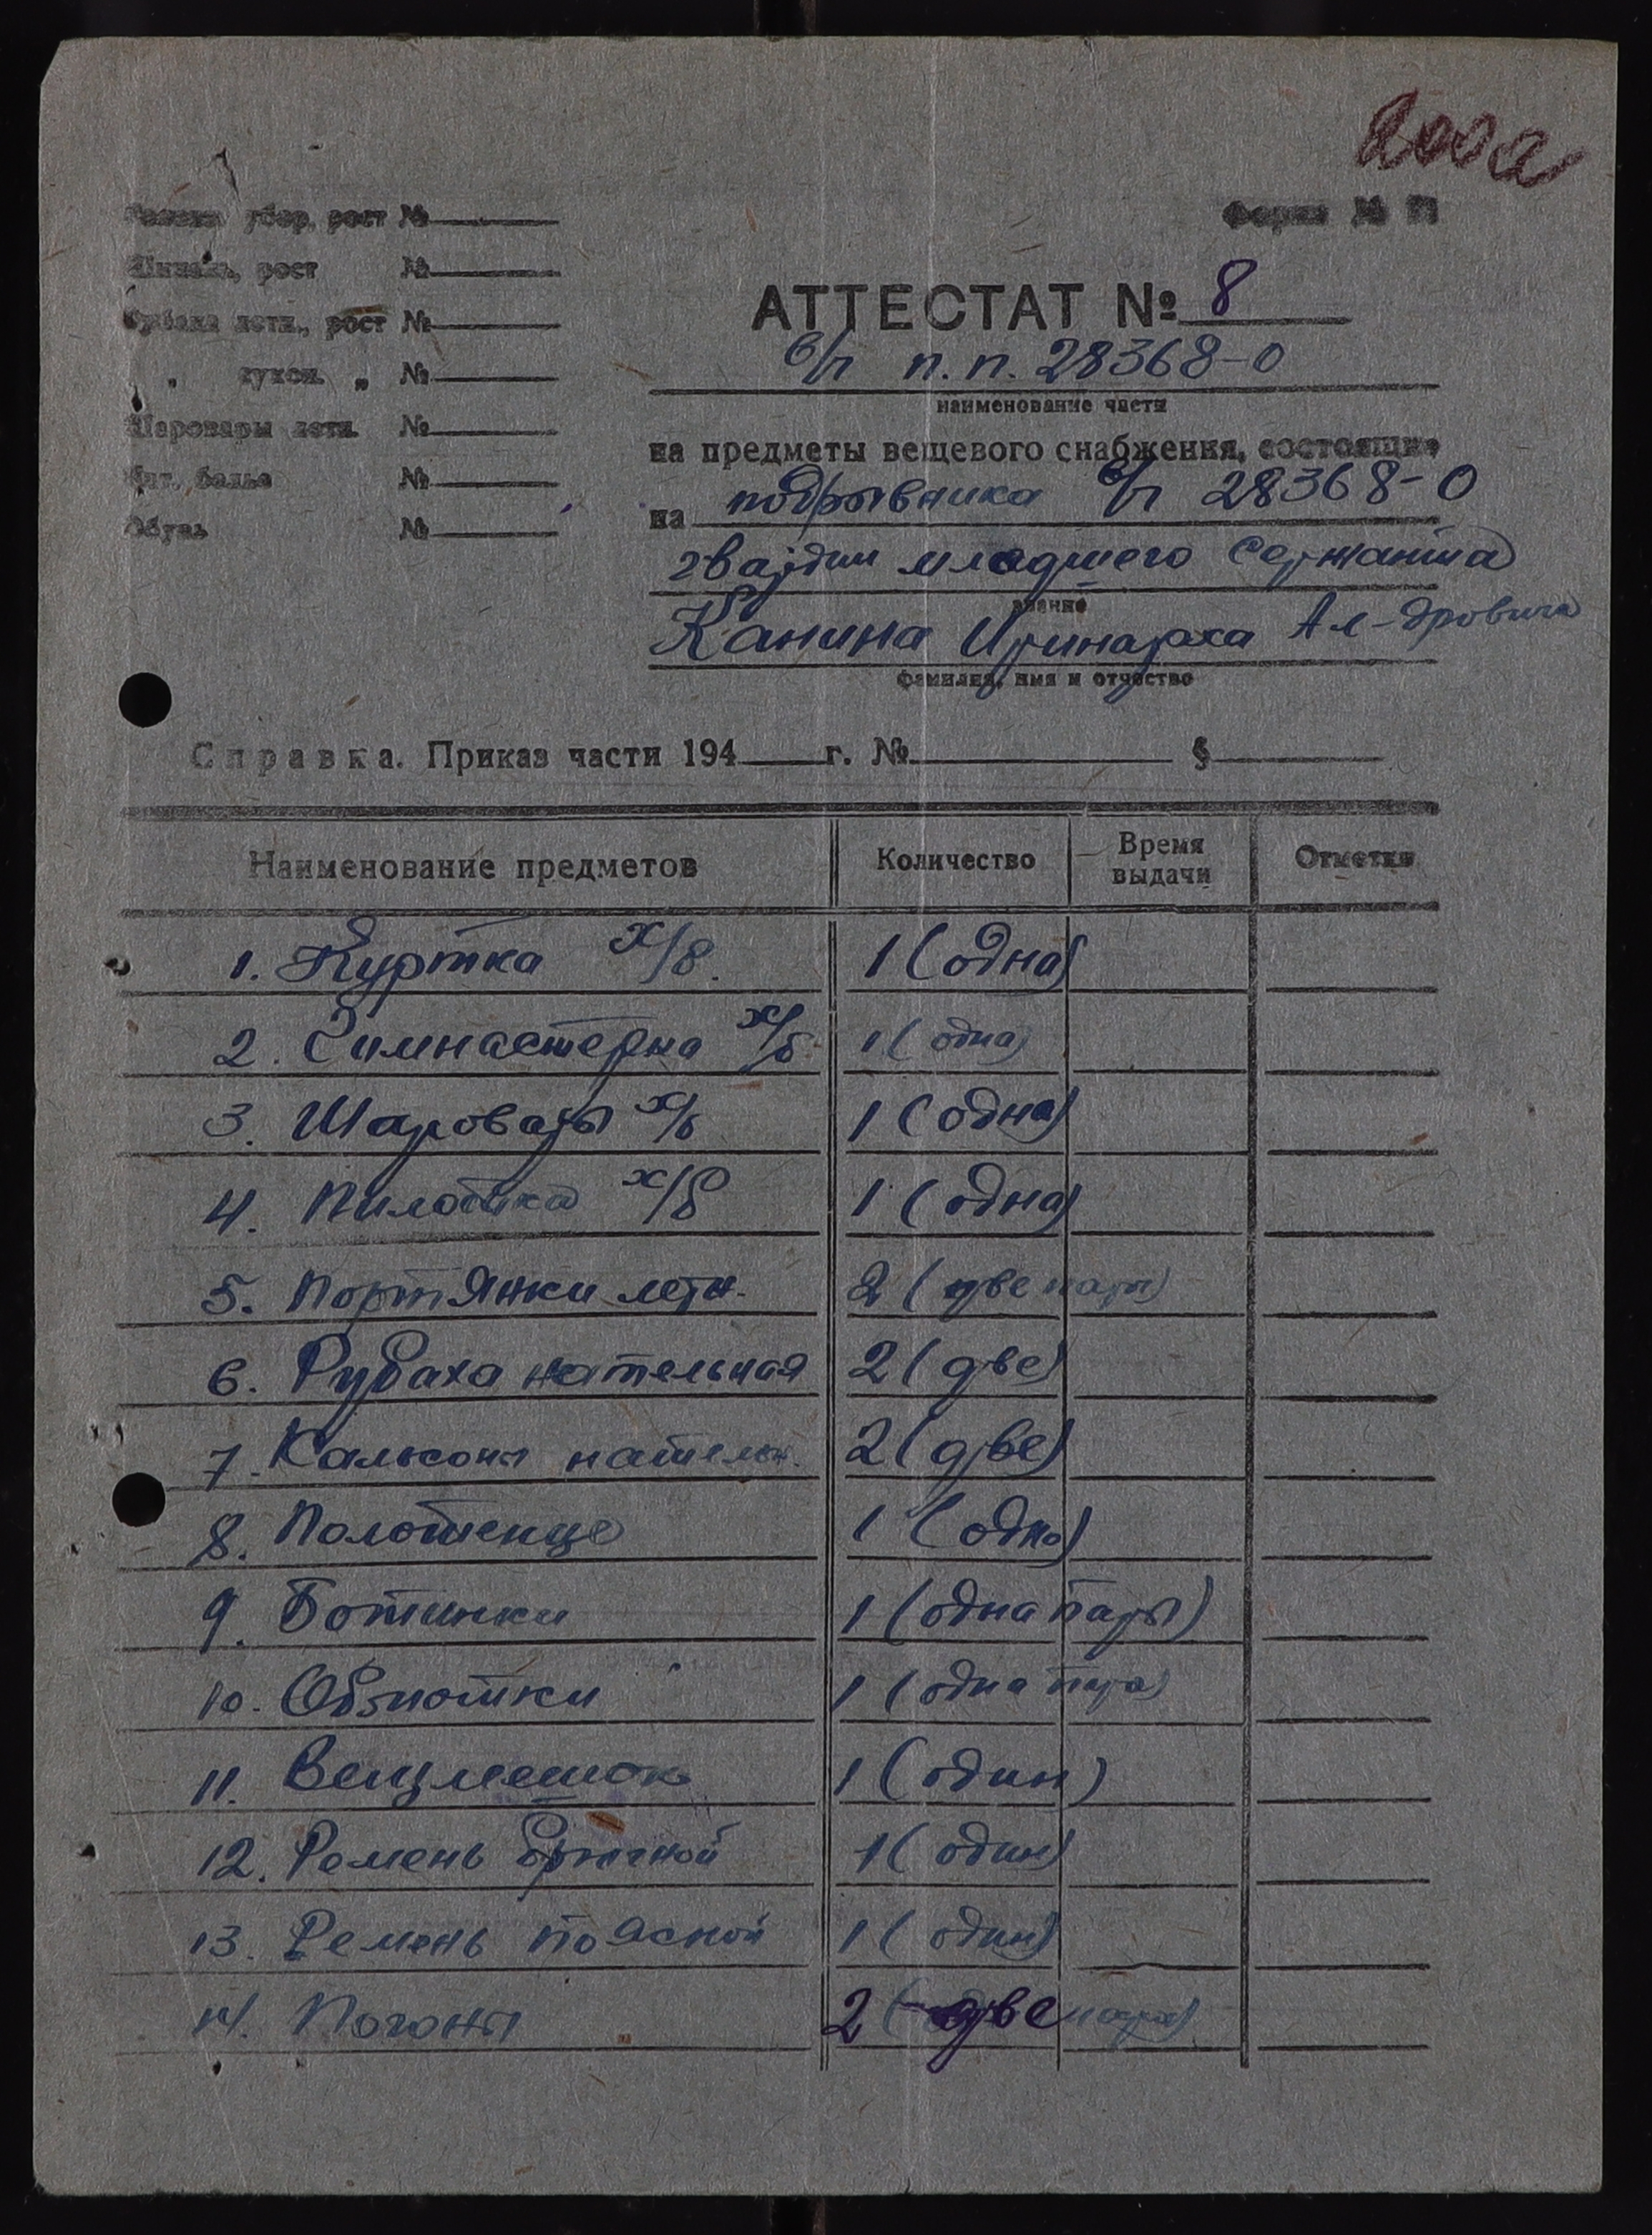 убор, рост №
Форма №
Шинель, рост №
АТТЕСТАТ № 8
Рубаха летн., рост №
в/ч п.п. 28368-О
" сукон. " №
наименование части
Шаровары летн. №
на предметы вещевого снабжения, состоящие
Нат. белье №
на подрывника в/ч 28368-О
Обувь №
гвардии младшего сержанта
звание
Канина Иринарха Ал-дровича
фамилия, имя и отчество
Справка. Приказ части 194 г. № §
Наименование предметов Количество Время выдачи Отметки
1. Куртка х/б. 1 (одна)
2. Гимнастерка х/б 1 (одна)
3. Шаровары х/б 1 (одна)
4. Пилотка х/б 1 (одна)
5. Портянки летн. 2 (две пары)
6. Рубаха нательная 2 (две)
7. Кальсоны нательн. 2 (две)
8. Полотенце 1 (одно)
9. Ботинки 1 (одна пары)
10. Обмотки 1 (одна пара)
11. Вещмешок 1 (один)
12. Ремень брючной 1 (один)
13. Ремень поясной 1 (один)
14. Погоны 2 (две пара)